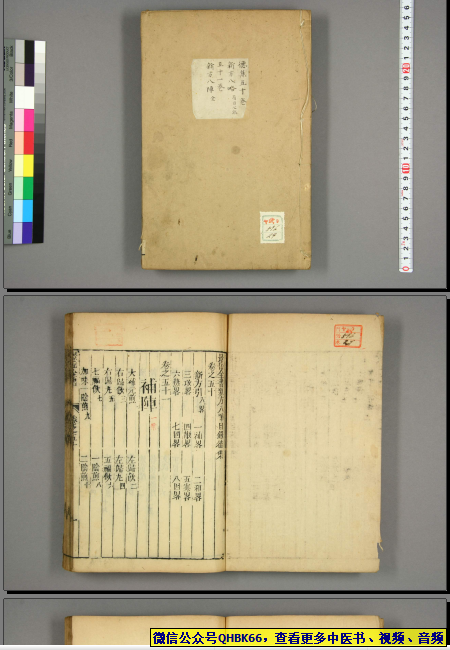 德集五十卷
新方八略
五十一卷
新方八陣
卷之五十
新方引八畧
一補畧
二和畧
三攻畧
四散畧
五寒畧
六熱畧
七固畧
八因畧
卷之五十一
補陣
大補元煎一
左歸飲二
右歸飲三
左歸丸四
右歸丸五
五福飲六
七福飲七
一陰煎八
加減一陰煎九
二陰煎十
微信公众号QHBK66,查看更多中医书、视频、音频